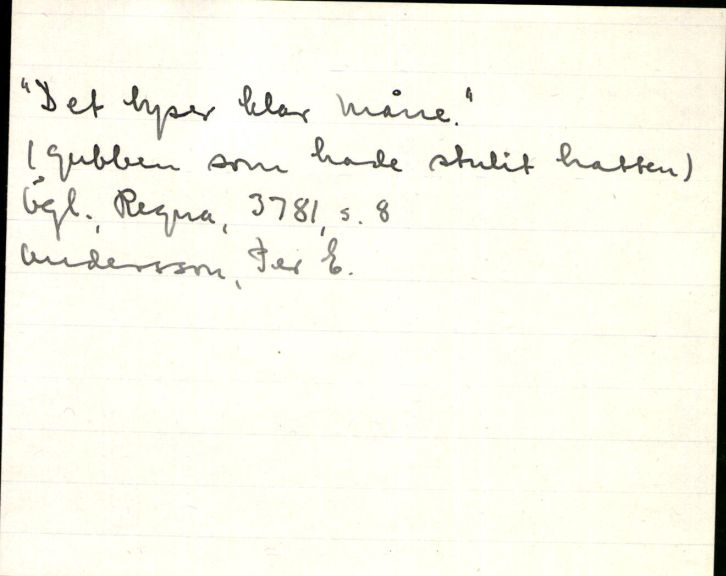 "Det lyser klar måne."
(gubben som hade stulit hatten)
Ögl., Regna, 3781, s. 8
Andersson, Per E.